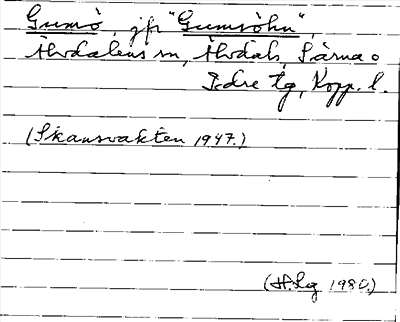 Gumsö, jfr "Gumsöhn",
Älvdalens sn, Älvdals, Särna o
Idre tg, Kopp. l.
(Skansvakten 1947.)
(H.Lg 1980.)